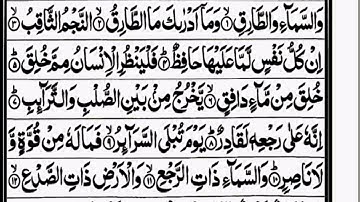 وَالسَّمَآءِ وَالطَّارِقِ ۝۱ وَمَاۤ اَدْرٰىكَ مَا الطَّارِقُ ۝۲ النَّجْمُ الثَّاقِبُ ۝۳
اِنْ كُلُّ نَفْسٍ لَّمَّا عَلَيْهَا حَافِظٌ ۝۴ فَلْيَنْظُرِ الْاِنْسَانُ مِمَّ خُلِقَ ۝۵
خُلِقَ مِنْ مَّآءٍ دَافِقٍ ۝۶ يَّخْرُجُ مِنْۢ بَيْنِ الصُّلْبِ وَالتَّرَآئِبِ ۝۷
اِنَّهٗ عَلٰى رَجْعِهٖ لَقَادِرٌ ۝۸ يَوْمَ تُبْلَى السَّرَآئِرُ ۝۹ فَمَا لَهٗ مِنْ قُوَّةٍ وَّ
لَا نَاصِرٍ ۝۱۰ وَالسَّمَآءِ ذَاتِ الرَّجْعِ ۝۱۱ وَالْاَرْضِ ذَاتِ الصَّدْعِ ۝۱۲